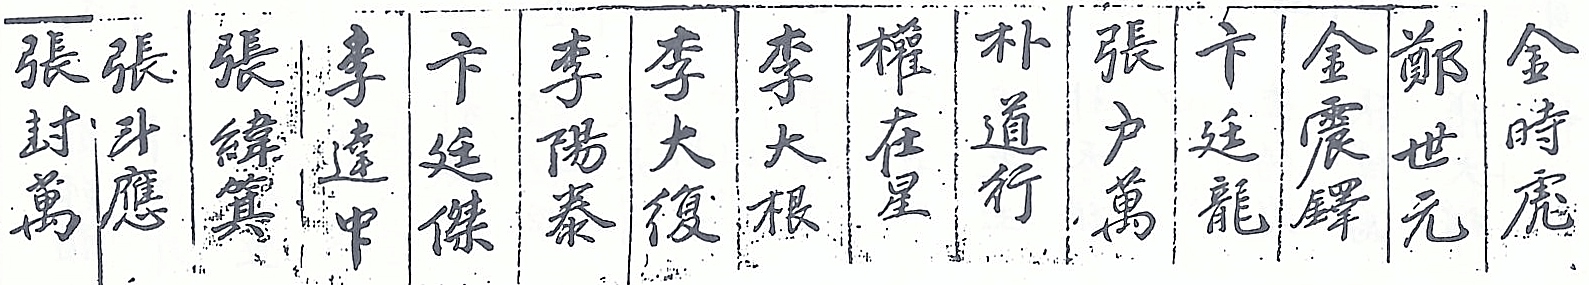 金時虎
鄭世元
金震鐸
卞廷龍
張户萬
朴道行
權在星
李大根
李大復
李陽泰
卞廷傑
李達中
張緯箕
張斗應
張封萬